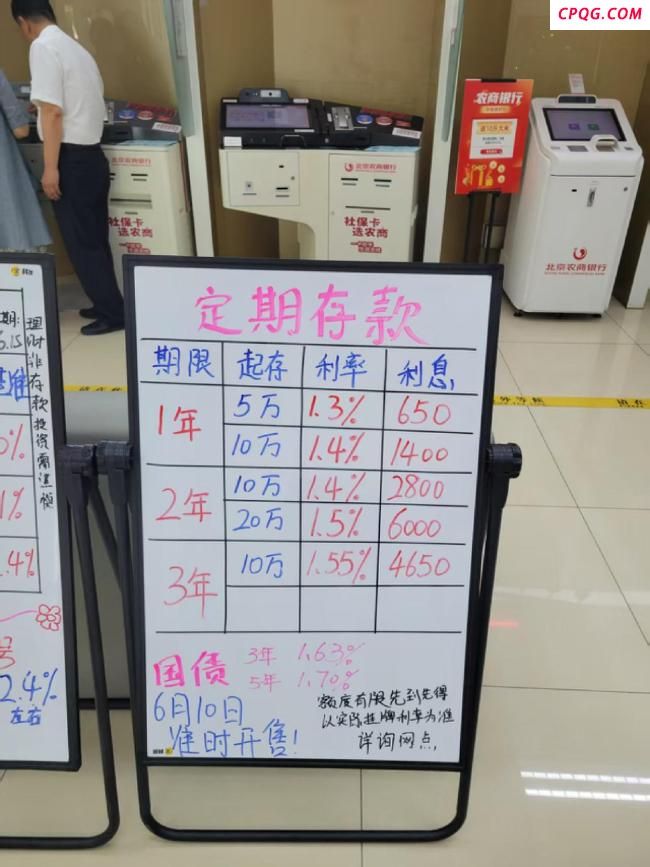 CPQG.COM
农商银行
北京农商银行
社保卡
选农商
北京农商银行
社保卡
选农商
北京农商银行
理财非存款投资需谨慎
2.4%
左右
定期存款
期限 起存 利率 利息
1年 5万 1.3% 650
10万 1.4% 1400
2年 10万 1.4% 2800
20万 1.5% 6000
3年 10万 1.55% 4650
国债 3年 1.63%
5年 1.70%
6月10日
准时开售!
额度有限先到先得
以实际挂牌利率为准
详询网点